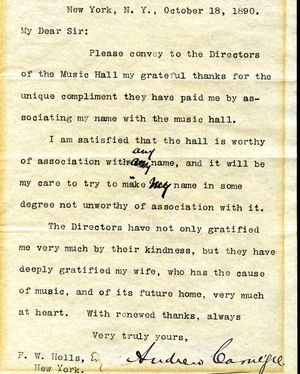 New York, N. Y., October 18, 1890.
My Dear Sir:
Please convey to the Directors
of the Music Hall my grateful thanks for the
unique compliment they have paid me by as-
sociating my name with the music hall.
I am satisfied that the hall is worthy
any
of association with any name, and it will be
my care to try to make my name in some
degree not unworthy of association with it.
The Directors have not only gratified
me very much by their kindness, but they have
deeply gratified my wife, who has the cause
of music, and of its future home, very much
at heart. With renewed thanks, always
Very truly yours,
F. W. Holls, Andrew Carnegie
New York.